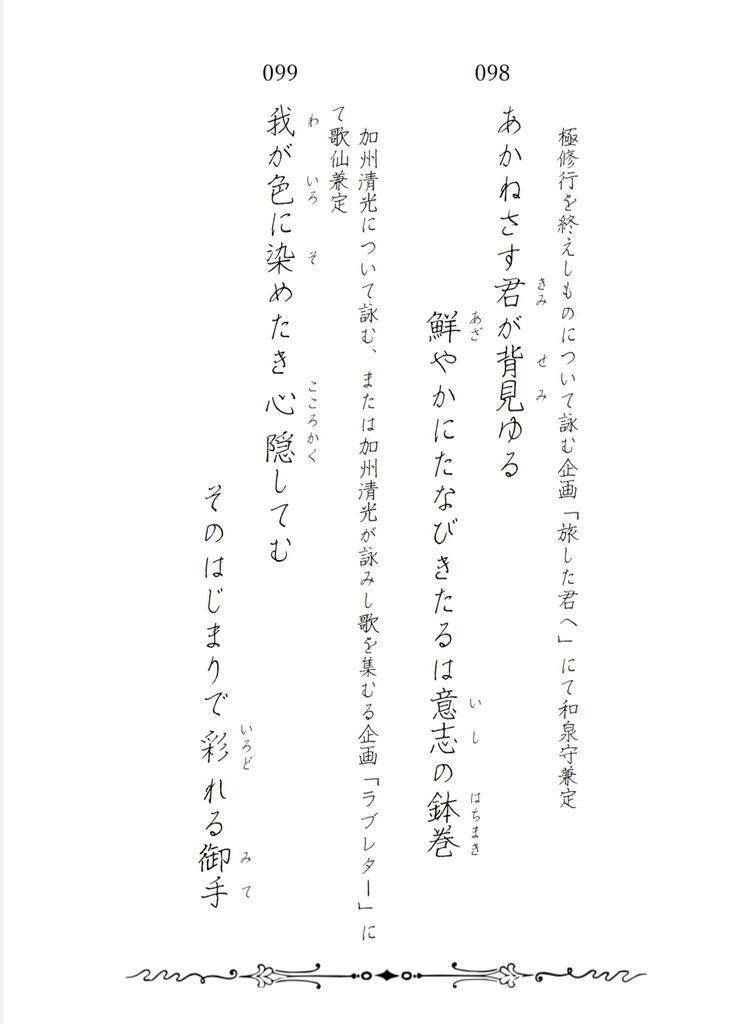 098
極修行を終えしものについて詠む企画「旅した君へ」にて和泉守兼定
あかねさす君が背見ゆる
きみ
せみ
鮮やかにたなびきたるは意志の鉢巻
あざ
いし
はちまき
099
加州清光について詠む、または加州清光が詠みし歌を集むる企画「ラブレター」に
て歌仙兼定
我が色に染めたき心隠してむ
わ
いろ
そ
こころかく
そのはじまりで彩れる御手
いろど
みて